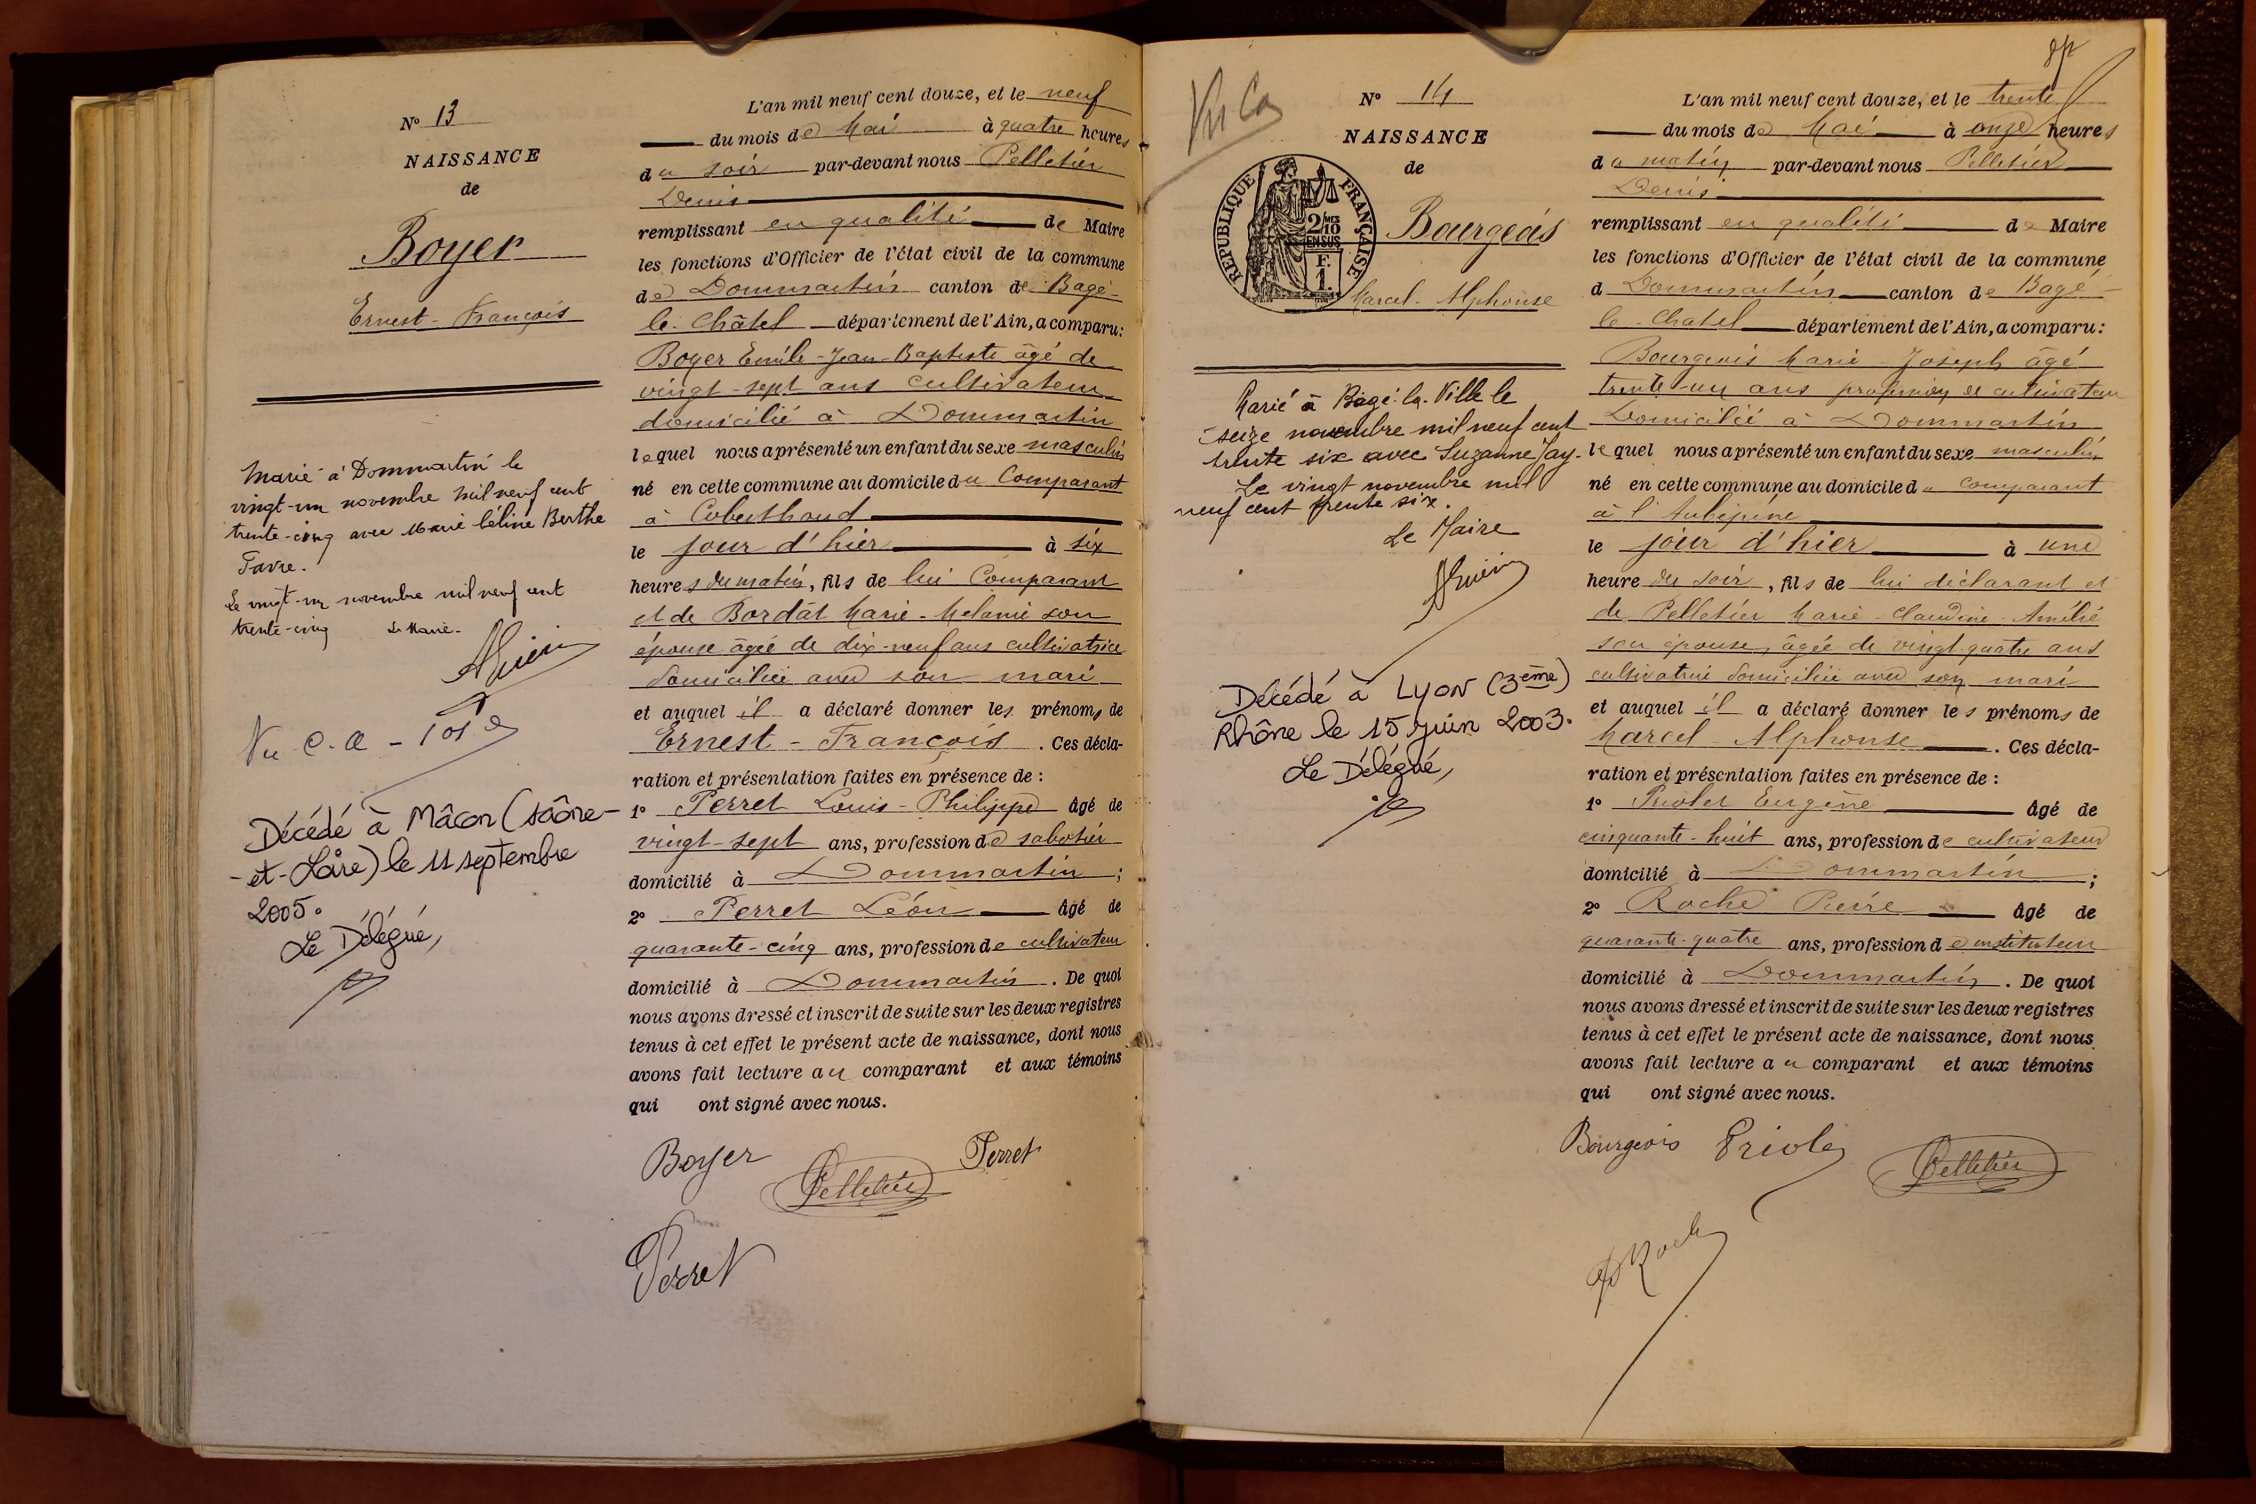 N° 13
NAISSANCE
de
Boyer
Ernest-François
Marié à Dommartin le
vingt-un novembre mil neuf cent
trente-cinq avec Marie Céline Berthe
Favre.
Le vingt-un novembre mil neuf cent
trente-cinq Le Maire.
Décédé à Mâcon (Saône-
-et-Loire) le 11 septembre
2005.
Le Délégué,
L'an mil neuf cent douze, et le neuf
du mois de Mai à quatre heures
du soir par-devant nous Pelletier
Denis
remplissant en qualité de Maire
les fonctions d'Officier de l'état civil de la commune
de Dommartin canton de Bagé-
le-Châtel département de l'Ain, a comparu :
Boyer Emile-Jean-Baptiste âgé de
vingt-sept ans cultivateur
domicilié à Dommartin
lequel nous a présenté un enfant du sexe masculin
né en cette commune au domicile du Comparant
à Coberthoud
le jour d'hier à six
heures du matin, fils de lui Comparant
et de Bordât Marie-Mélanie son
épouse âgée de dix-neuf ans cultivatrice
domiciliée avec son mari
et auquel il a déclaré donner les prénoms de
Ernest-François. Ces décla-
ration et présentation faites en présence de :
1° Perret Louis-Philippe âgé de
vingt-sept ans, profession de sabotier
domicilié à Dommartin ;
2° Perret Léon âgé de
quarante-cinq ans, profession de cultivateur
domicilié à Dommartin. De quoi
nous avons dressé et inscrit de suite sur les deux registres
tenus à cet effet le présent acte de naissance, dont nous
avons fait lecture au comparant et aux témoins
qui ont signé avec nous.
Boyer Pelletier Perret
Perret
N° 14
NAISSANCE
de
REPUBLIQUE FRANÇAISE
2/10
EN SUS
F.
1.
Bourgeois
Marcel-Alphonse
Marié à Bagé-la-Ville le
seize novembre mil neuf cent
trente six avec Suzanne Jay.
Le vingt novembre mil
neuf cent trente six.
Le Maire
Décédé à Lyon (3ème)
Rhône le 15 juin 2003.
Le Délégué,
L'an mil neuf cent douze, et le trente
du mois de Mai à onze heures
du matin par-devant nous Pelletier
Denis
remplissant en qualité de Maire
les fonctions d'Officier de l'état civil de la commune
d Dommartin canton de Bagé-
le-Chatel département de l'Ain, a comparu :
Bourgeois Marie-Joseph âgé
trente-un ans profession de cultivateur
Domicilié à Dommartin
lequel nous a présenté un enfant du sexe masculin
né en cette commune au domicile du comparant
à l'Aubépine
le jour d'hier à une
heure du soir, fils de lui déclarant et
de Pelletier Marie-Claudine-Amélie
son épouse, âgée de vingt-quatre ans
cultivatrice domiciliée avec son mari
et auquel il a déclaré donner les prénoms de
Marcel-Alphonse. Ces décla-
ration et présentation faites en présence de :
1° Priolet Eugène âgé de
cinquante-huit ans, profession de cultivateur
domicilié à Dommartin ;
2° Roche Pierre âgé de
quarante-quatre ans, profession de instituteur
domicilié à Dommartin. De quoi
nous avons dressé et inscrit de suite sur les deux registres
tenus à cet effet le présent acte de naissance, dont nous
avons fait lecture au comparant et aux témoins
qui ont signé avec nous.
Bourgeois Priolet Pelletier
Roche